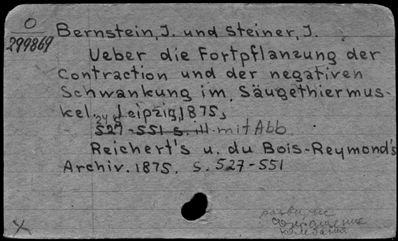 O
299869
Bernstein, J. und Steiner, J.
Ueber die Fortpflanzung der
Contraction und der negativen
Schwankung im Säugethiermus-
kel. Leipzig, 1875,
527-551 S. mit Abb.
Reichert's u. du Bois-Reymond's
Archiv. 1875. S. 527-551
X